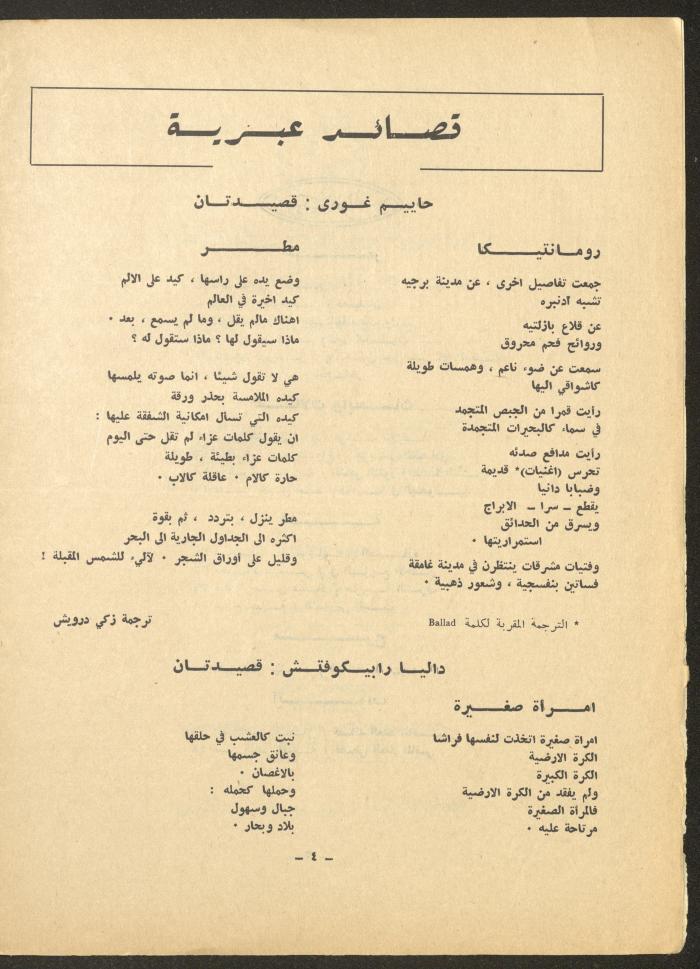 قصائد عبرية
حاييم غورى : قصيدتان
رومانتيكا
جمعت تفاصيل اخرى ، عن مدينة برجيه
تشبه أدنبره
عن قلاع بازلتيه
وروائح فحم محروق
سمعت عن ضوء ناعم ، وهمسات طويلة
كاشواقي اليها
رأيت قمرا من الجبص المتجمد
في سماء كالبحيرات المتجمدة
رأيت مدافع صدئه
تحرس (اغنيات)* قديمة
وضبابا دانيا
يقطع - سرا - الابراج
ويسرق من الحدائق
استمراريتها ٠
وفتيات مشرقات ينتظرن في مدينة غامقة
فساتين بنفسجية ، وشعور ذهبية ٠
* الترجمة المقربة لكلمة Ballad
مطر
وضع يده على راسها ، كيد على الالم
كيد اخيرة في العالم
اهناك مالم يقل ، وما لم يسمع ، بعد ٠
ماذا سيقول لها ؟ ماذا ستقول له ؟
هي لا تقول شيئا ، انما صوته يلمسها
كيده الملامسة بحذر ورقة
كيده التي تسأل امكانية الشفقة عليها :
ان يقول كلمات عزاء لم تقل حتى اليوم
كلمات عزاء بطيئة ، طويلة
حارة كالام ٠ عاقلة كالاب ٠
مطر ينزل ، بتردد ، ثم بقوة
اكثره الى الجداول الجارية الى البحر
وقليل على أوراق الشجر ٠ لآليء للشمس المقبلة !
ترجمة زكي درويش
داليا رابيكوفتش : قصيدتان
امرأة صغيرة
امراة صغيرة اتخذت لنفسها فراشا
الكرة الارضية
الكرة الكبيرة
ولم يفقد من الكرة الارضية
فالمرأة الصغيرة
مرتاحة عليه ٠
نبت كالعشب في حلقها
وعانق جسمها
بالاغصان ٠
وحملها كحمله :
جبال وسهول
بلاد وبحار ٠
- ٤ -